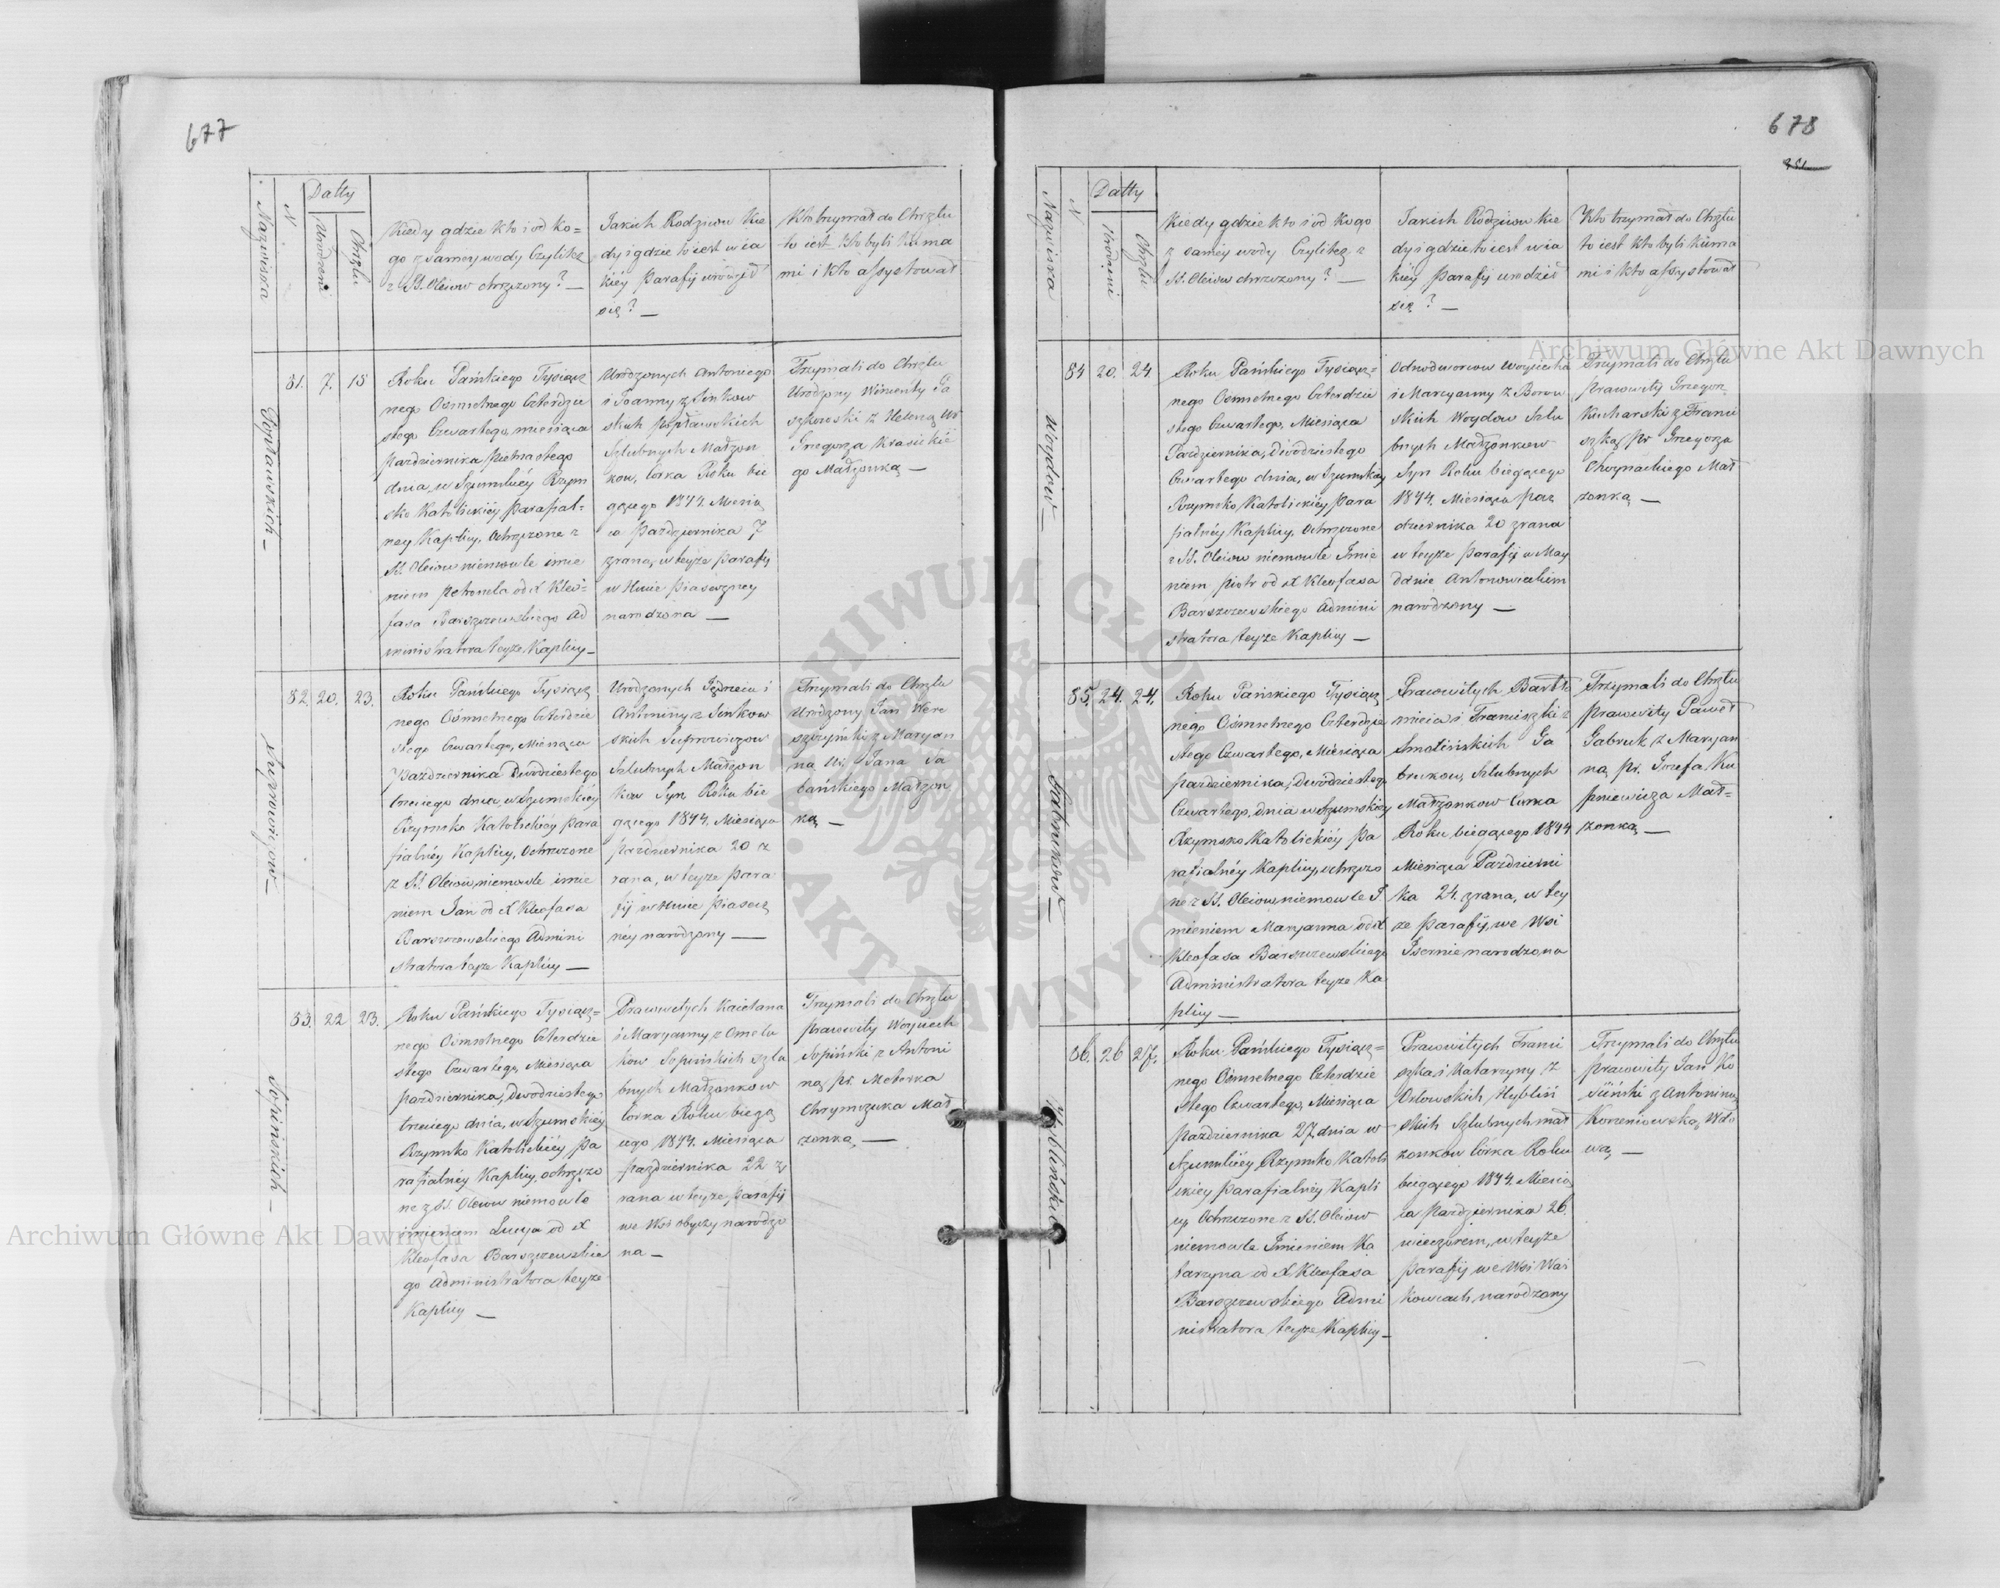 677
Nazwiska
N
Datty
Urodzeni
Chrztu
Kiedy gdzie kto i od ko=
go z samey wody Czylitez
z SS. Oleiow chrzczony? —
Jakich Rodziców Kie
dy i gdzie to iest w ia
kiéy Parafij urodził
się? —
Kto trzymał do Chrztu
to iest Kto byli Kuma
mi i Kto assystował
81. 7. 15
Popławskich —
Roku Pańskiego Tysiącz
nego Ośmsetnego Czterdzie
stego Czwartego, miesiąca
Pazdziernika pietnastego
dnia, w Szumskiéy Rzym
sko Katolickiéy Parafial=
ney Kaplicy, Ochrzczone z
SS. Oleiow niemowle imie
niem Petronela od X Kleo=
fasa Barszczewskiego Ad
ministratora teyże Kaplicy —
Urodzonych Antoniego
i Joanny z Sinkow
skich Popławskich
Szlubnych Małżon
kow, Córka Roku bie
gącego 1844. Miesią
ca Pazdziernika 7
zrana, w teyże Parafij
w Hucie Piaseczney
narodzona —
Trzymali do Chrztu
Urodzony Wincenty
z Heleną Ur.
Grzegorza Krasickie
go Małżonką —
82. 20. 23.
Roku Pańskiego Tysiącz
nego Ośmsetnego Czterdzie
stego Czwartego, Miesiąca
Pazdziernika Dwódziestego
trzeciego dnia, w Szumskiéy
Rzymsko Katolickiéy Para
fialnéy Kaplicy, Ochrzczone
z SS. Oleiow, niemowle imie
niem Jan od X Kleofasa
Barszczewskiego Admini
stratora tejze Kaplicy —
Urodzonych Jędrzeia i
Antoniny z Sinkow
skich
Szlubnych Małżon
kow Syn Roku bie
gącego 1844. Miesiąca
Pazdziernika 20 z
rana, w teyze Para
fij w Hucie Piasecz
néy narodzony —
Trzymali do Chrztu
Urodzony Jan Were
szczyński z Maryan
ną Ur. Jana Ja
bańskiego Małżon
ką —
83. 22 23.
Sopińskich —
Roku Pańskiego Tysiącz=
nego Ośmsetnego Czterdzie
stego Czwartego, Miesiąca
Pazdziernika, Dwódziestego
trzeciego dnia, w Szumskiéy
Rzymsko Katolickiéy Pa
rafialnéy Kaplicy, ochrzczo
ne z SS. Oleiow niemowle
imieniem Lucyja od X
Kleofasa Barszczewskie
go Administratora teyze
Kaplicy —
Prawowitych Kaietana
i Maryanny z Omelu
kow Sopińskich Szlu
bnych Małżonkow
Córka Roku biegą
cego 1844. Miesiąca
Pazdziernika 22 z
rana w teyze Parafij
we Wsi Obyczy narodzo
na —
Trzymali do Chrztu
Prawowity Woyciech
Sopiński z Antoni
ną Pr.
Chrymczuka Mał
żonką —
678
Nazwiska
N
Datty
Urodzeni
Chrztu
Kiedy gdzie kto i od kogo
z samey wody Czylitez z
SS. Oleiow chrzczony? —
Jakich Rodziców Kie
dy i gdzie to iest w ia
kiéy Parafij urodził
się? —
Kto trzymał do Chrztu
to iest Kto byli Kuma
mi i Kto assystował
84 20. 24
Woydow —
Roku Pańskiego Tysiącz=
nego Ośmsetnego Czterdzie
stego Czwartego, Miesiąca
Pazdziernika, Dwódziestego
Czwartego dnia, w Szumskiéy
Rzymsko Katolickiéy Para
fialnéy Kaplicy, Ochrzczone
z SS. Oleiow niemowle Imie
niem Piotr od X Kleofasa
Barszczewskiego Admini
stratora teyze Kaplicy —
Odnodworcow Woyciecha
i Maryanny z Borow
skich Woydow Szlu
bnych Małżonkow
Syn Roku biegącego
1844. Miesiąca Paz
dziernika 20 zrana
w teyze Parafij w May
danie Antonowieckiem
narodzony —
Trzymali do Chrztu
Prawowity Grzegorz
Kucharski z Franci
szką Pr. Grzegorza
Choynackiego Mał
żonką —
85. 24. 24.
Gabrukow —
Roku Pańskiego Tysiącz
nego Ośmsetnego Czterdzie
stego Czwartego, Miesiąca
Pazdziernika, Dwódziestego
Czwartego, dnia w Szumskiéy
Rzymsko Katolickiéy Pa
rafialnéy Kaplicy, ochrzczo
ne z SS. Oleiow, niemowle I
mieniem Maryanna od X
Kleofasa Barszczewskiego
Administratora teyze Ka
plicy —
Prawowitych Bartło
mieia i Franciszki z
Smolińskich Ga
brukow, Szlubnych
Małżonkow Córka
Roku biegącego 1844
Miesiąca Pazdzierni
ka 24. zrana, w tey
ze Parafij, we Wsi
Isernie narodzona
Trzymali do Chrztu
Prawowity Paweł
Gabruk z Maryan
ną Pr. Jozefa Ku
pniewicza Mał=
żonką —
86. 26 27.
Hyblińskich —
Roku Pańskiego Tysiącz=
nego Ośmsetnego Czterdzie
stego Czwartego, Miesiąca
Pazdziernika 27 dnia w
Szumskiéy Rzymsko Katoli
ckiey Parafialnéy Kapli
cy, Ochrzczone z SS. Oleiow
niemowle Imieniem Ka
tarzyna od X Kleofasa
Barszczewskiego Admi
nistratora teyze Kaplicy —
Prawowitych Franci
szka i Katarzyny z
Orłowskich Hybliń
skich Szlubnych Mał
żonkow Córka Roku
biegącego 1844. Miesią
ca Pazdziernika 26
wieczorem, w teyze
Parafij we Wsi Wa
kowcach, narodzony
Trzymali do Chrztu
Prawowity Jan Ko
siński z Antoniną
Korzeniowską, Wdo
wą —
Archiwum Główne Akt Dawnych
Archiwum Główne Akt Dawnych
ARCHIWUM GŁÓWNE AKT DAWNYCH